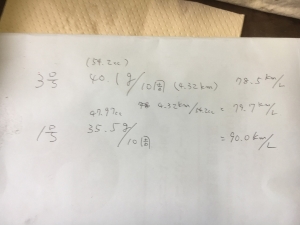 (54.2cc)
3号 40.1g/10周 (4.32km) 78.5km/L
47.97cc 4.32km/54.2cc = 79.7km/L
1号 35.5g/10周 = 90.0km/L